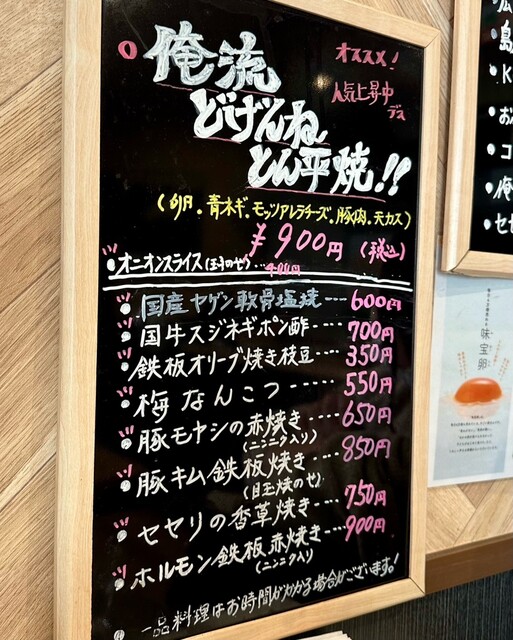 俺流
どげんね
とん平焼!!
オススメ!
人気上昇中
デス
(卵.青ネギ.モッツァレラチーズ.豚肉.天カス)
¥900円(税込)
オニオンスライス(玉子のせ)...400円
国産ヤゲン軟骨塩焼----600円
国牛スジネギポン酢----700円
鉄板オリーブ焼き枝豆---350円
梅なんこつ-----550円
豚モヤシの赤焼き----650円
(ニンニク入り)
豚キム鉄板焼き----850円
(目玉焼のせ)
セセリの香草焼き---750円
ホルモン鉄板赤焼き---900円
(ニンニク入り)
一品料理はお時間がかかる場合がございます!
島
K
お
コ
俺
セセ
味宝卵